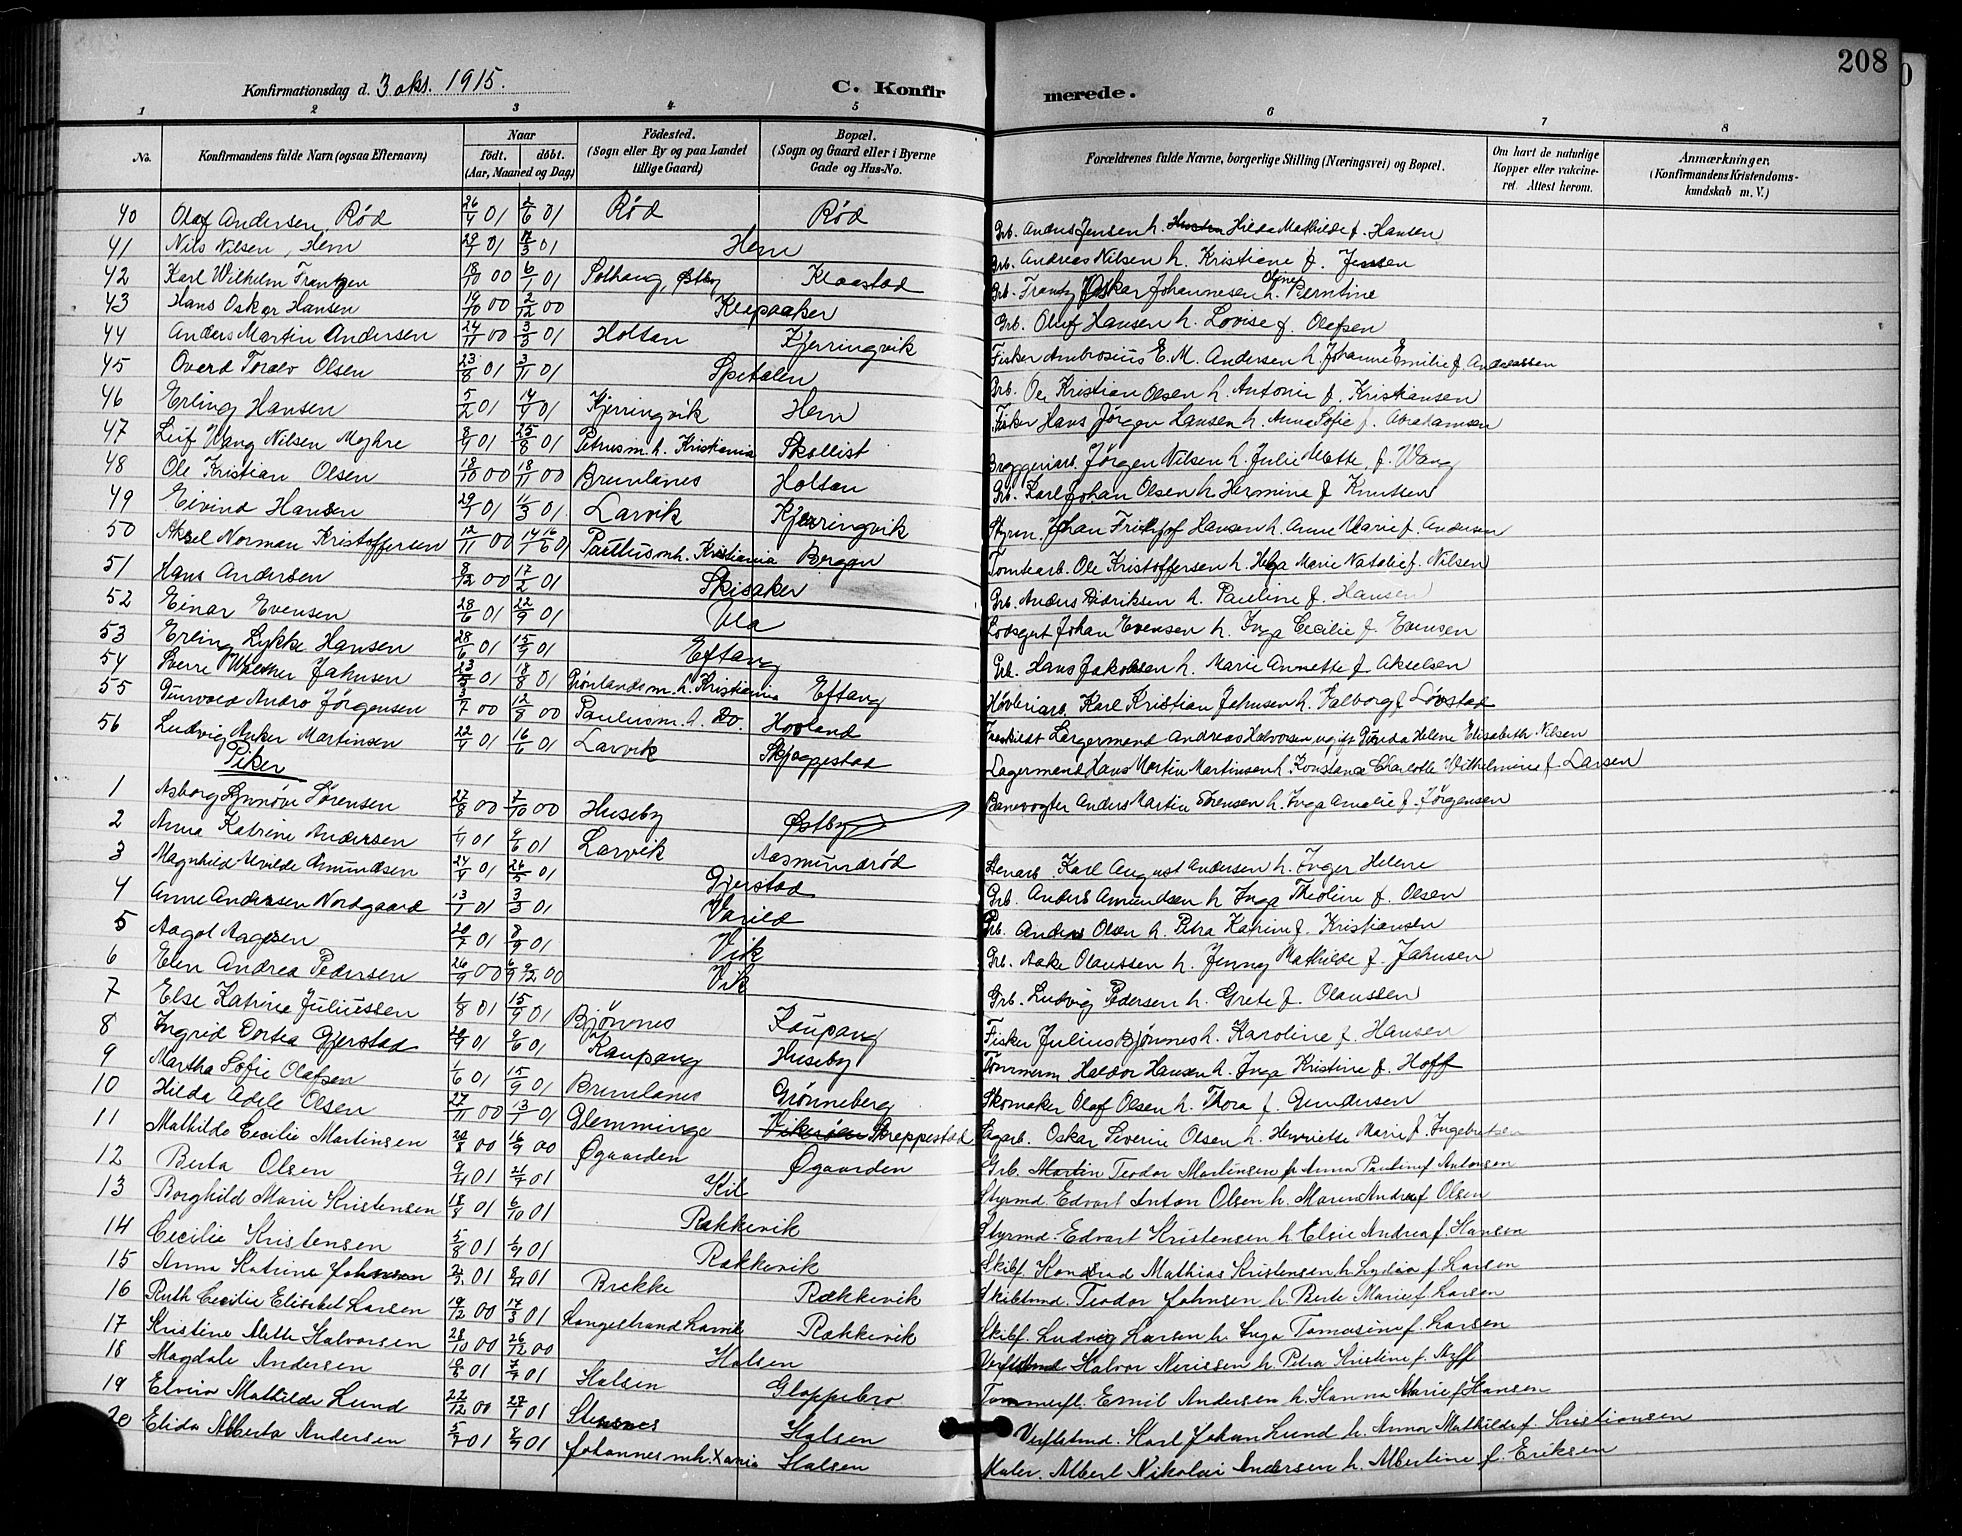 208
Konfirmationsdag d. 3 okt. 1915.
C. Konfirmerede.
1 2 3 4 5 6 7 8
No. Konfirmandens fulde Navn (ogsaa Efternavn) Naar født. døbt. (Aar, Maaned og Dag) Fødested. (Sogn eller By og paa Landet tillige Gaard) Bopæl. (Sogn og Gaard eller i Byerne Gade og Hus-No. Forældrenes fulde Navne, borgerlige Stilling (Næringsvei) og Bopæl. Om havt de naturlige Kopper eller vakcineret. Attest herom. Anmærkninger, (Konfirmandens Kristendomskundskab m. V.)
40 Olaf Andersen, Rød 26/4 01 2/6 01 Rød Rød Grb. Anders Jensen h. Hilda Mathilde f. Hansen
41 Nils Nilsen, Hem 29/1 01 17/3 01 Hem Grb. Andreas Nilsen h. Kristiane f. Jensen
42 Karl Wilhelm Frantzen 18/10 00 6/1 01 Solhaug, Østby Klaastad Grb. Frantz Oskar Johannesen h. Oline Berntine
43 Hans Oskar Hansen 19/10 00 2/12 00 Klepaaker Grb. Oluf Hansen h. Lovise f. Olafsen
44 Anders Martin Andersen 24/11 00 3/3 01 Holtan Kjerringvik Fisker Ambrosius E. M. Andersen h. Johanne Emilie f. Andreassen
45 Overd Toralv Olsen 23/8 01 3/11 01 Spetalen Grb. Ole Kristian Olsen h. Antonie f. Kristiansen
46 Erling Hansen 5/2 01 14/4 01 Kjerringvik Hem Fisker Hans Jørgen Hansen h. Anna Sofie f. Abrahamsen
47 Leif Wang Nilsen Myhre 8/4 01 25/8 01 Petrusm. h. Kristiania Skallist Bryggeriarb. Jørgen Nilsen h. Julie Mette f. Wang
48 Ole Kristian Olsen 18/10 00 18/11 00 Brunlanes Holtan Grb. Karl Johan Olsen h. Hermine f. Knutsen
49 Eivind Hansen 29/1 01 11/3 01 Larvik Kjerringvik Styrm. Johan Fridtjof Hansen h. Anne Marie f. Andersen
50 Aksel Norman Kristoffersen 12/11 00 Paulusmh. Kristiania Bergan Tomtearb. Ole Kristoffersen h. Helga Marie Natalie f. Nilsen
51 Hans Andersen 8/12 00 17/2 01 Skisaker Grb. Anders Didriksen h. Pauline f. Hansen
52 Einar Evensen 28/6 01 22/9 01 Ula Lodsgut Johan Evensen h. Inga Cecilie f. Evensen
53 Erling Lykke Hansen 28/6 01 15/9 01 Eftang Grb. Hans Jakobsen h. Marie Annette f. Akselsen
54 Sverre Walther Jahnsen 23/5 01 18/8 01 Grønlandsm. h. Kristiania Eftang Høvleriarb. Karl Kristian Jahnsen h. Valborg f. Løvstad
55 Thorvald Andro Jørgensen 3/7 00 12/8 00 Paulusm. h. Do. Hovland Fraskildt Lagermand Andreas Halvorsen ugift Helene Elisabeth Nilsen
56 Ludvig Anker Martinsen 22/4 01 16/6 01 Larvik Skjæggestad Lagermand Hans Martin Martinsen h. Konstance Charlotte Wilhelmine f. Larsen
Piker
1 Asborg Synnøve Sørensen 27/8 00 7/10 00 Huseby Østby Banevogter Anders Martin Sørensen h. Inga Amalie f. Jørgensen
2 Anna Katrine Andersen 1/4 01 9/6 01 Larvik Aasmundrød Stenarb. Karl August Andersen h. Inger Helene
3 Magnhild Alvilde Amundsen 24/4 01 26/5 01 Gjerstad Grb. Anders Amundsen h. Inga Theoline f. Olsen
4 Anne Andersen Nordgaard 13/1 01 3/3 01 Varild Grb. Anders Olsen h. Petra Katrine f. Kristiansen
5 Aagot Aagesen 20/7 01 8/9 01 Vik Grb. Aake Olaussen h. Jenny Mathilde f. Jahnsen
6 Elen Andrea Pedersen 26/9 00 9/12 00 Vik Grb. Ludvig Pedersen h. Grete f. Olaussen
7 Else Katrine Juliussen 1/8 01 15/9 01 Bjønnes Kaupang Fisker Julius Bjønnes h. Karoline f. Hansen
8 Ingrid Dortea Gjerstad 20/4 01 9/6 01 Kaupang Huseby Tømmerm Haldor Hansen h. Inga Kristine f. Hoff
9 Martha Sofie Olafsen 1/6 01 15/9 01 Brunlanes Grønneberg Skomaker Olaf Olsen h. Thora f. Gundersen
10 Hilda Adele Olsen 27/11 00 13/1 01 Glemminge Vikersøen Skreppestad Sagarb. Oskar Severin Olsen h. Henriette Marie f. Ingebretsen
11 Mathilde Cecilie Martinsen 20/8 00 16/9 00 Øgaarden Øgaarden Grb. Martin Teodor Martinsen h. Anna Pauline f. Antonsen
12 Berta Olsen 9/4 01 21/7 01 Kil Styrmd. Edvart Anton Olsen h. Maren Andrea f. Olsen
13 Borghild Marie Kristensen 18/8 01 6/10 01 Rækkevik Styrmd. Edvart Kristensen h. Elsie Andrea f. Hansen
14 Cecilie Kristensen 5/8 01 1/9 01 Rækkevik Skibf. Konrad Mathias Kristensen h. Lydia f. Larsen
15 Anna Katrine Johnsen 2/3 01 8/4 01 Brekke Rækkevik Skibstmd. Teodor Johnsen h. Berte Marie f. Larsen
16 Ruth Cecilie Elisabet Larsen 19/12 00 17/3 01 Langestrand Larvik Rækkevik Skibf. Ludvig Larsen h. Inga Tomasine f. Larsen
17 Kristine Mette Halvorsen 28/10 00 26/12 00 Halsen Verfstmd Halvor Nerissen h. Petra Kristine f.
18 Magdale Andersen 01 7/7 01 Halsen Gloppebro Tommerfl. Emil Andersen h. Hanna Marie f Hansen
19 Elvira Mathilde Lund 22/12 00 27/1 01 Stensnes Halsen Verftstmd. Karl Johan Lund h. Anna Mathilde f. Kristiansen
20 Elida Alberta Andersen 5/7 01 8/9 01 Johannesmh. Xania Halsen Maler. Albert Nikolai Andersen h. Albertine f. Eriksen